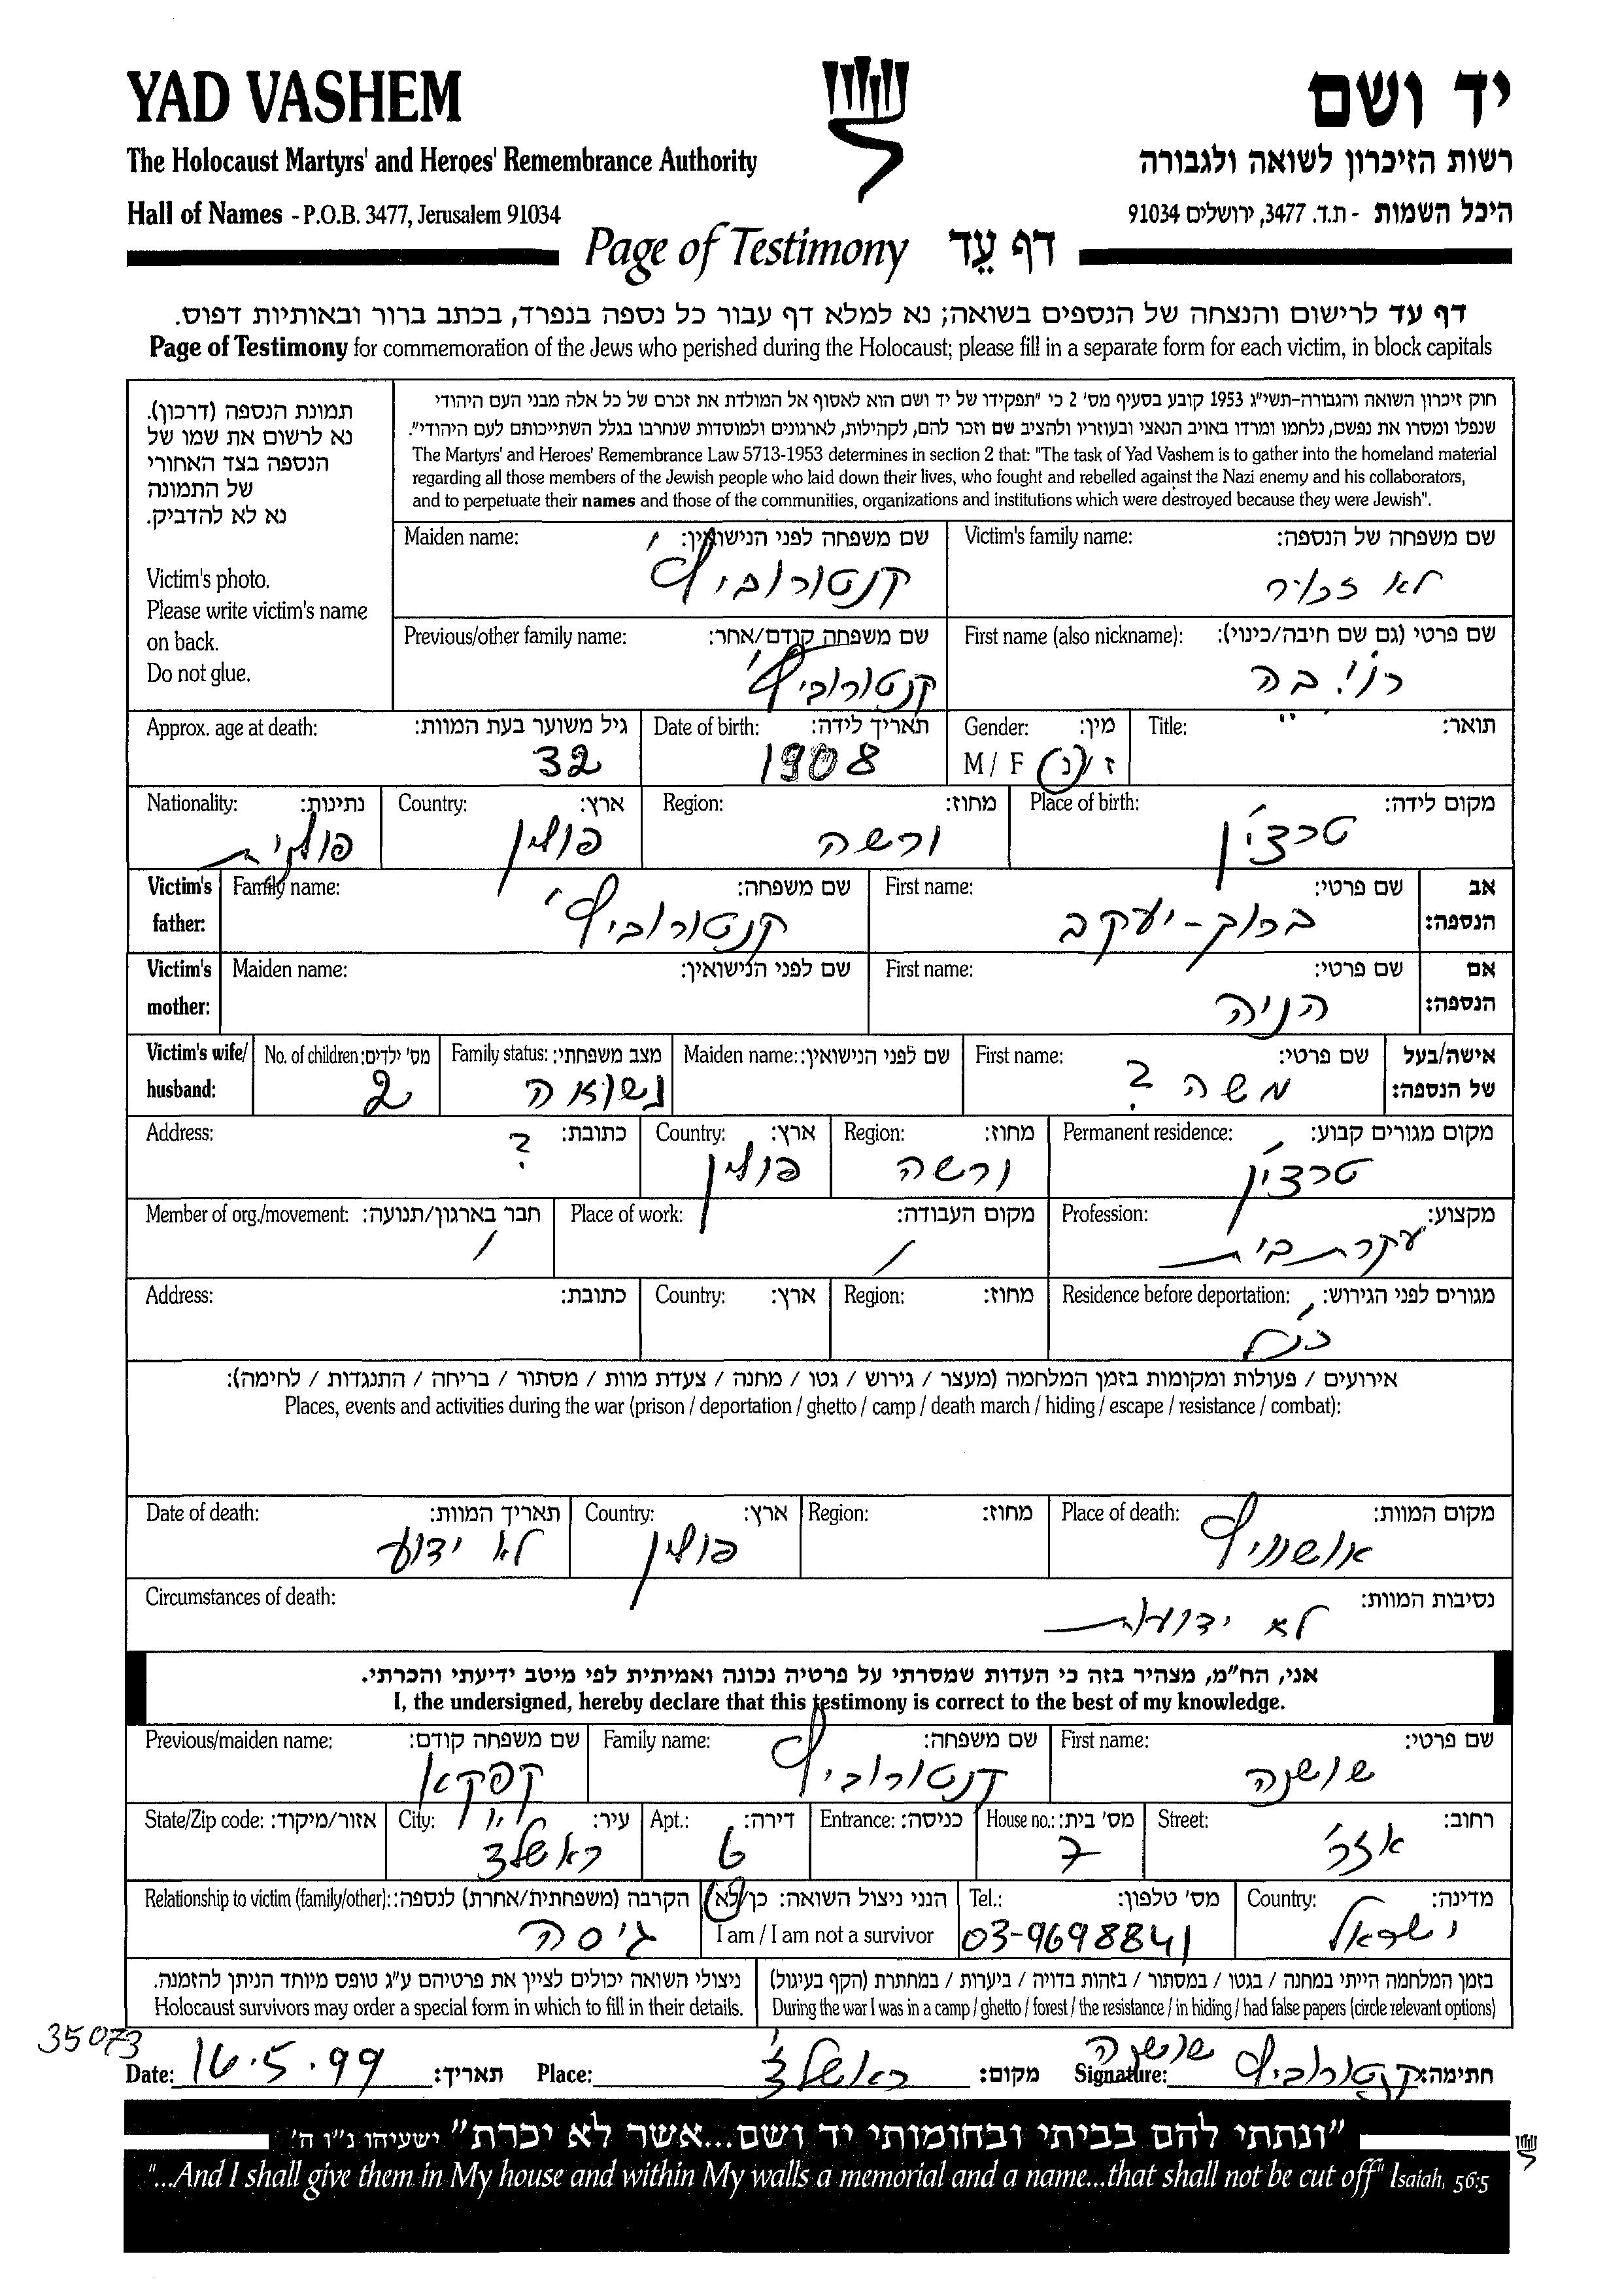 YAD VASHEM
יד ושם
The Holocaust Martyrs' and Heroes' Remembrance Authority
רשות הזיכרון לשואה ולגבורה
Hall of Names - P.O.B. 3477, Jerusalem 91034
היכל השמות - ת.ד. 3477, ירושלים 91034
Page of Testimony דף עֵד
דף עד לרישום והנצחה של הנספים בשואה; נא למלא דף עבור כל נספה בנפרד, בכתב ברור ובאותיות דפוס.
Page of Testimony for commemoration of the Jews who perished during the Holocaust; please fill in a separate form for each victim, in block capitals
תמונת הנספה (דרכון).
נא לרשום את שמו של
הנספה בצד האחורי
של התמונה
נא לא להדביק.
Victim's photo.
Please write victim's name
on back.
Do not glue.
חוק זיכרון השואה והגבורה-תשי"ג 1953 קובע בסעיף מס' 2 כי "תפקידו של יד ושם הוא לאסוף אל המולדת את זכרם של כל אלה מבני העם היהודי
שנפלו ומסרו את נפשם, נלחמו ומרדו באויב הנאצי ובעוזריו ולהציב שם וזכר להם, לקהילות, לארגונים ולמוסדות שנחרבו בגלל השתייכותם לעם היהודי".
The Martyrs' and Heroes' Remembrance Law 5713-1953 determines in section 2 that: "The task of Yad Vashem is to gather into the homeland material
regarding all those members of the Jewish people who laid down their lives, who fought and rebelled against the Nazi enemy and his collaborators,
and to perpetuate their names and those of the communities, organizations and institutions which were destroyed because they were Jewish".
Victim's family name: שם משפחה של הנספה:
לא זכור
Maiden name: שם משפחה לפני הנישואין:
קנטורוביץ'
First name (also nickname): שם פרטי (גם שם חיבה/כינוי):
רייבה
Previous/other family name: שם משפחה קודם/אחר:
קנטורוביץ'
Title: תואר:
Gender: מין:
M / F ז / נ
Date of birth: תאריך לידה:
1908
Approx. age at death: גיל משוער בעת המוות:
32
Place of birth: מקום לידה:
טרצ'ין
Region: מחוז:
ורשה
Country: ארץ:
פולין
Nationality: נתינות:
פולנית
Victim's father: אב הנספה:
First name: שם פרטי:
ברוך-יעקב
Family name: שם משפחה:
קנטורוביץ'
Victim's mother: אם הנספה:
First name: שם פרטי:
הניה
Maiden name: שם לפני הנישואין:
Victim's wife/ husband: אישה/בעל של הנספה:
First name: שם פרטי:
משה ?
Maiden name: שם לפני הנישואין:
Family status: מצב משפחתי:
נשואה
No. of children: מס' ילדים:
2
Permanent residence: מקום מגורים קבוע:
טרצ'ין
Region: מחוז:
ורשה
Country: ארץ:
פולין
Address: כתובת:
?
Profession: מקצוע:
עקרת בית
Place of work: מקום העבודה:
/
Member of org./movement: חבר בארגון/תנועה:
/
Residence before deportation: מגורים לפני הגירוש:
כנ"ל
Region: מחוז:
Country: ארץ:
Address: כתובת:
אירועים / פעולות ומקומות בזמן המלחמה (מעצר / גירוש / גטו / מחנה / צעדת מוות / מסתור / בריחה / התנגדות / לחימה):
Places, events and activities during the war (prison / deportation / ghetto / camp / death march / hiding / escape / resistance / combat):
Place of death: מקום המוות:
אושוויץ
Region: מחוז:
Country: ארץ:
פולין
Date of death: תאריך המוות:
לא ידוע
Circumstances of death: נסיבות המוות:
לא ידועות
אני, הח"מ, מצהיר בזה כי העדות שמסרתי על פרטיה נכונה ואמיתית לפי מיטב ידיעתי והכרתי.
I, the undersigned, hereby declare that this testimony is correct to the best of my knowledge.
First name: שם פרטי:
שושנה
Family name: שם משפחה:
קנטורוביץ
Previous/maiden name: שם משפחה קודם:
קפקא
Street: רחוב:
House no.: מס' בית:
7
Entrance: כניסה:
Apt.: דירה:
6
City: עיר:
ראשל"צ
State/Zip code: אזור/מיקוד:
Country: מדינה:
ישראל
Tel.: מס' טלפון:
03-9698841
הנני ניצול השואה: כן/לא
I am / I am not a survivor
Relationship to victim (family/other): הקרבה (משפחתית/אחרת) לנספה:
גיסה
בזמן המלחמה הייתי במחנה / בגטו / במסתור / בזהות בדויה / ביערות / במחתרת (הקף בעיגול)
During the war I was in a camp / ghetto / forest / the resistance / in hiding / had false papers (circle relevant options)
ניצולי השואה יכולים לציין את פרטיהם ע"ג טופס מיוחד הניתן להזמנה.
Holocaust survivors may order a special form in which to fill in their details.
35073
Date: 16.5.99 תאריך: Place: ראשל"צ מקום: Signature: שושנה קנטורוביץ חתימה:
"ונתתי להם בביתי ובחומותי יד ושם...אשר לא יכרת" ישעיהו נ"ו ה'
"...And I shall give them in My house and within My walls a memorial and a name...that shall not be cut off" Isaiah, 56:5